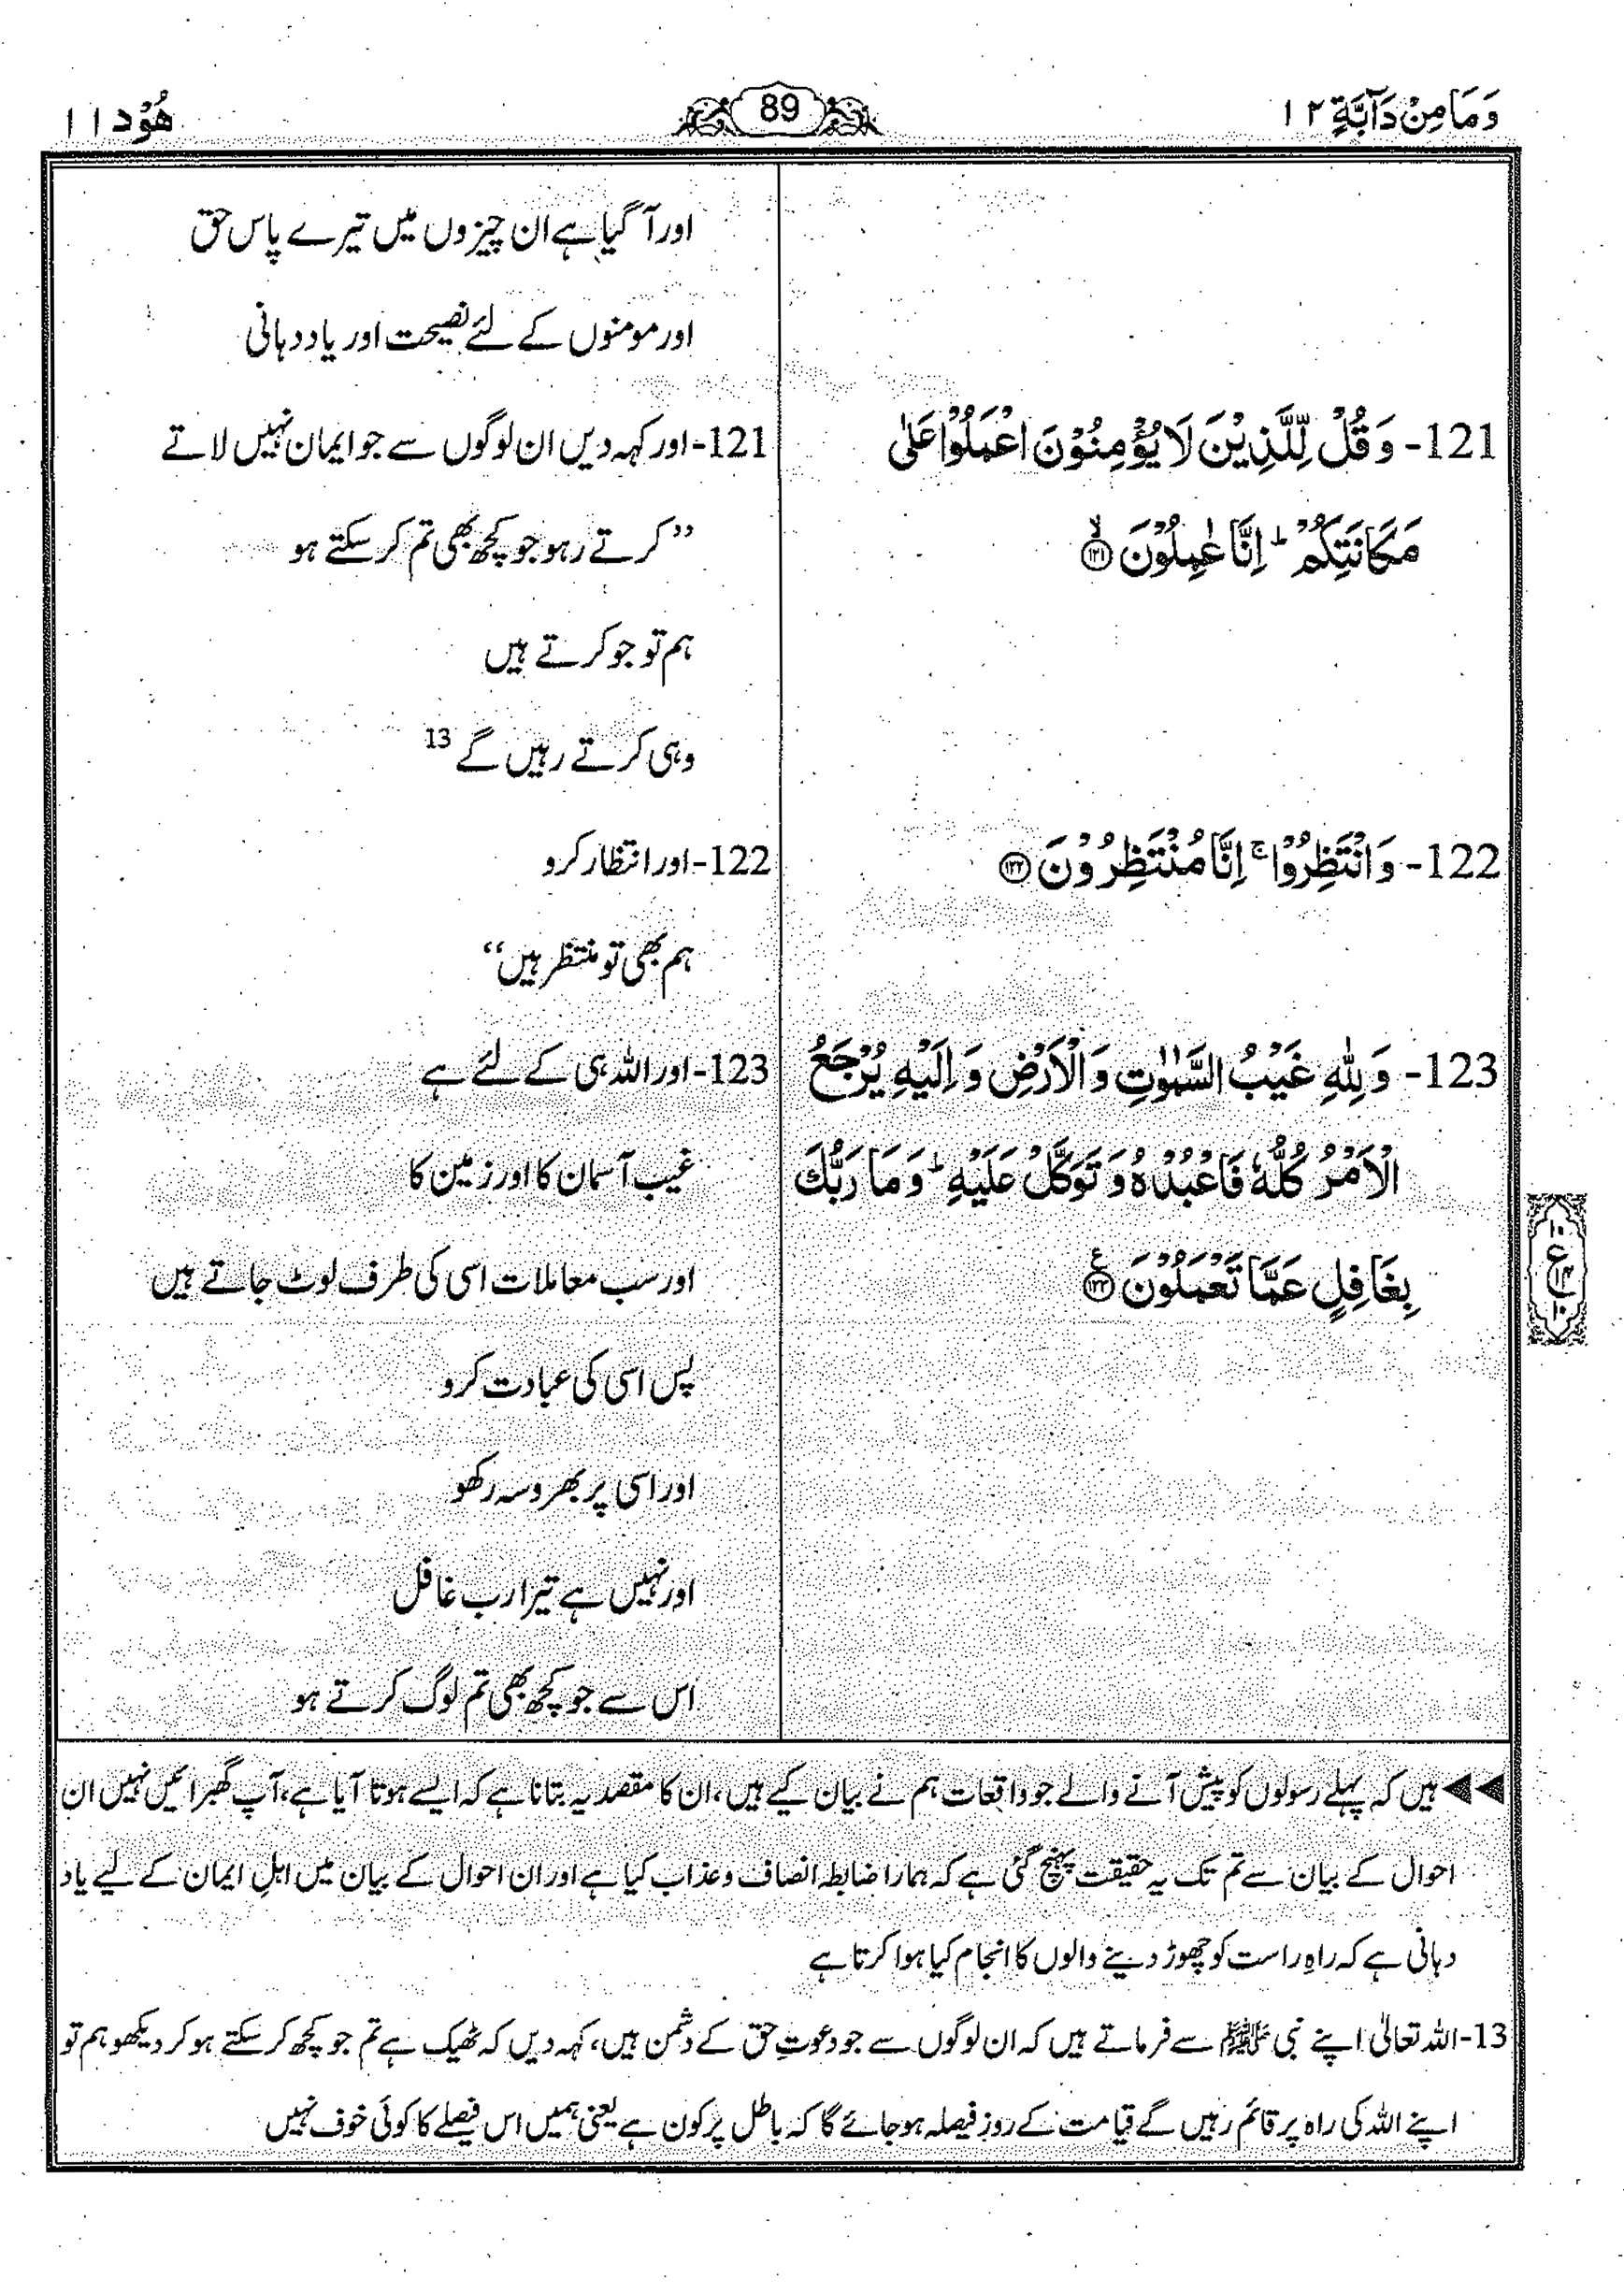 وَمَا مِنْ دَآبَّةٍ ۱۲
89
هُوْد ۱۱
اور آ گیا ہے ان چیزوں میں تیرے پاس حق
اور مومنوں کے لئے نصیحت اور یاد دہانی
121- وَقُلْ لِّلَّذِيْنَ لَا يُؤْمِنُوْنَ اعْمَلُوْا عَلٰى
مَكَانَتِكُمْ ؕ اِنَّا عٰمِلُوْنَ ۙ﴿۱۲۱﴾
121- اور کہہ دیں ان لوگوں سے جو ایمان نہیں لاتے
’’کرتے رہو جو کچھ بھی تم کر سکتے ہو
ہم تو جو کرتے ہیں
وہی کرتے رہیں گے 13
122- وَانْتَظِرُوْا ۚ اِنَّا مُنْتَظِرُوْنَ ﴿۱۲۲﴾
122- اور انتظار کرو
ہم بھی تو منتظر ہیں‘‘
123- وَلِلّٰهِ غَيْبُ السَّمٰوٰتِ وَالْاَرْضِ وَاِلَيْهِ يُرْجَعُ
الْاَمْرُ كُلُّهٗ فَاعْبُدْهُ وَتَوَكَّلْ عَلَيْهِ ؕ وَمَا رَبُّكَ
بِغَافِلٍ عَمَّا تَعْمَلُوْنَ ﴿۱۲۳﴾ ع
123- اور اللہ ہی کے لئے ہے
غیب آسمان کا اور زمین کا
اور سب معاملات اسی کی طرف لوٹ جاتے ہیں
پس اسی کی عبادت کرو
اور اسی پر بھروسہ رکھو
اور نہیں ہے تیرا رب غافل
اس سے جو کچھ بھی تم لوگ کرتے ہو
ع
◀◀ ہیں کہ پہلے رسولوں کو پیش آنے والے جو واقعات ہم نے بیان کیے ہیں، ان کا مقصد یہ بتانا ہے کہ ایسے ہوتا آیا ہے، آپ گھبرائیں نہیں ان
احوال کے بیان سے تم تک یہ حقیقت پہنچ گئی ہے کہ ہمارا ضابطہ انصاف و عذاب کیا ہے اور ان احوال کے بیان میں اہلِ ایمان کے لیے یاد
دہانی ہے کہ راہِ راست کو چھوڑ دینے والوں کا انجام کیا ہوا کرتا ہے
13- اللہ تعالیٰ اپنے نبی ﷺ سے فرماتے ہیں کہ ان لوگوں سے جو دعوتِ حق کے دشمن ہیں، کہہ دیں کہ ٹھیک ہے تم جو کچھ کر سکتے ہو کر دیکھو ہم تو
اپنے اللہ کی راہ پر قائم رہیں گے قیامت کے روز فیصلہ ہو جائے گا کہ باطل پر کون ہے یعنی ہمیں اس فیصلے کا کوئی خوف نہیں